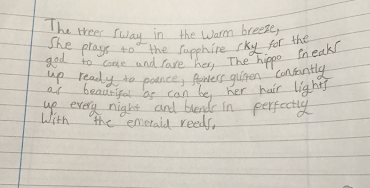 The trees sway in the warm breeze,
She prays to the sapphire sky for the
god to come and save her, The hippo sneaks
up ready to pounce, flowers glisten constantly
as beautiful as can be, her hair lights
up every night and blends in perfectly
with the emerald reeds.